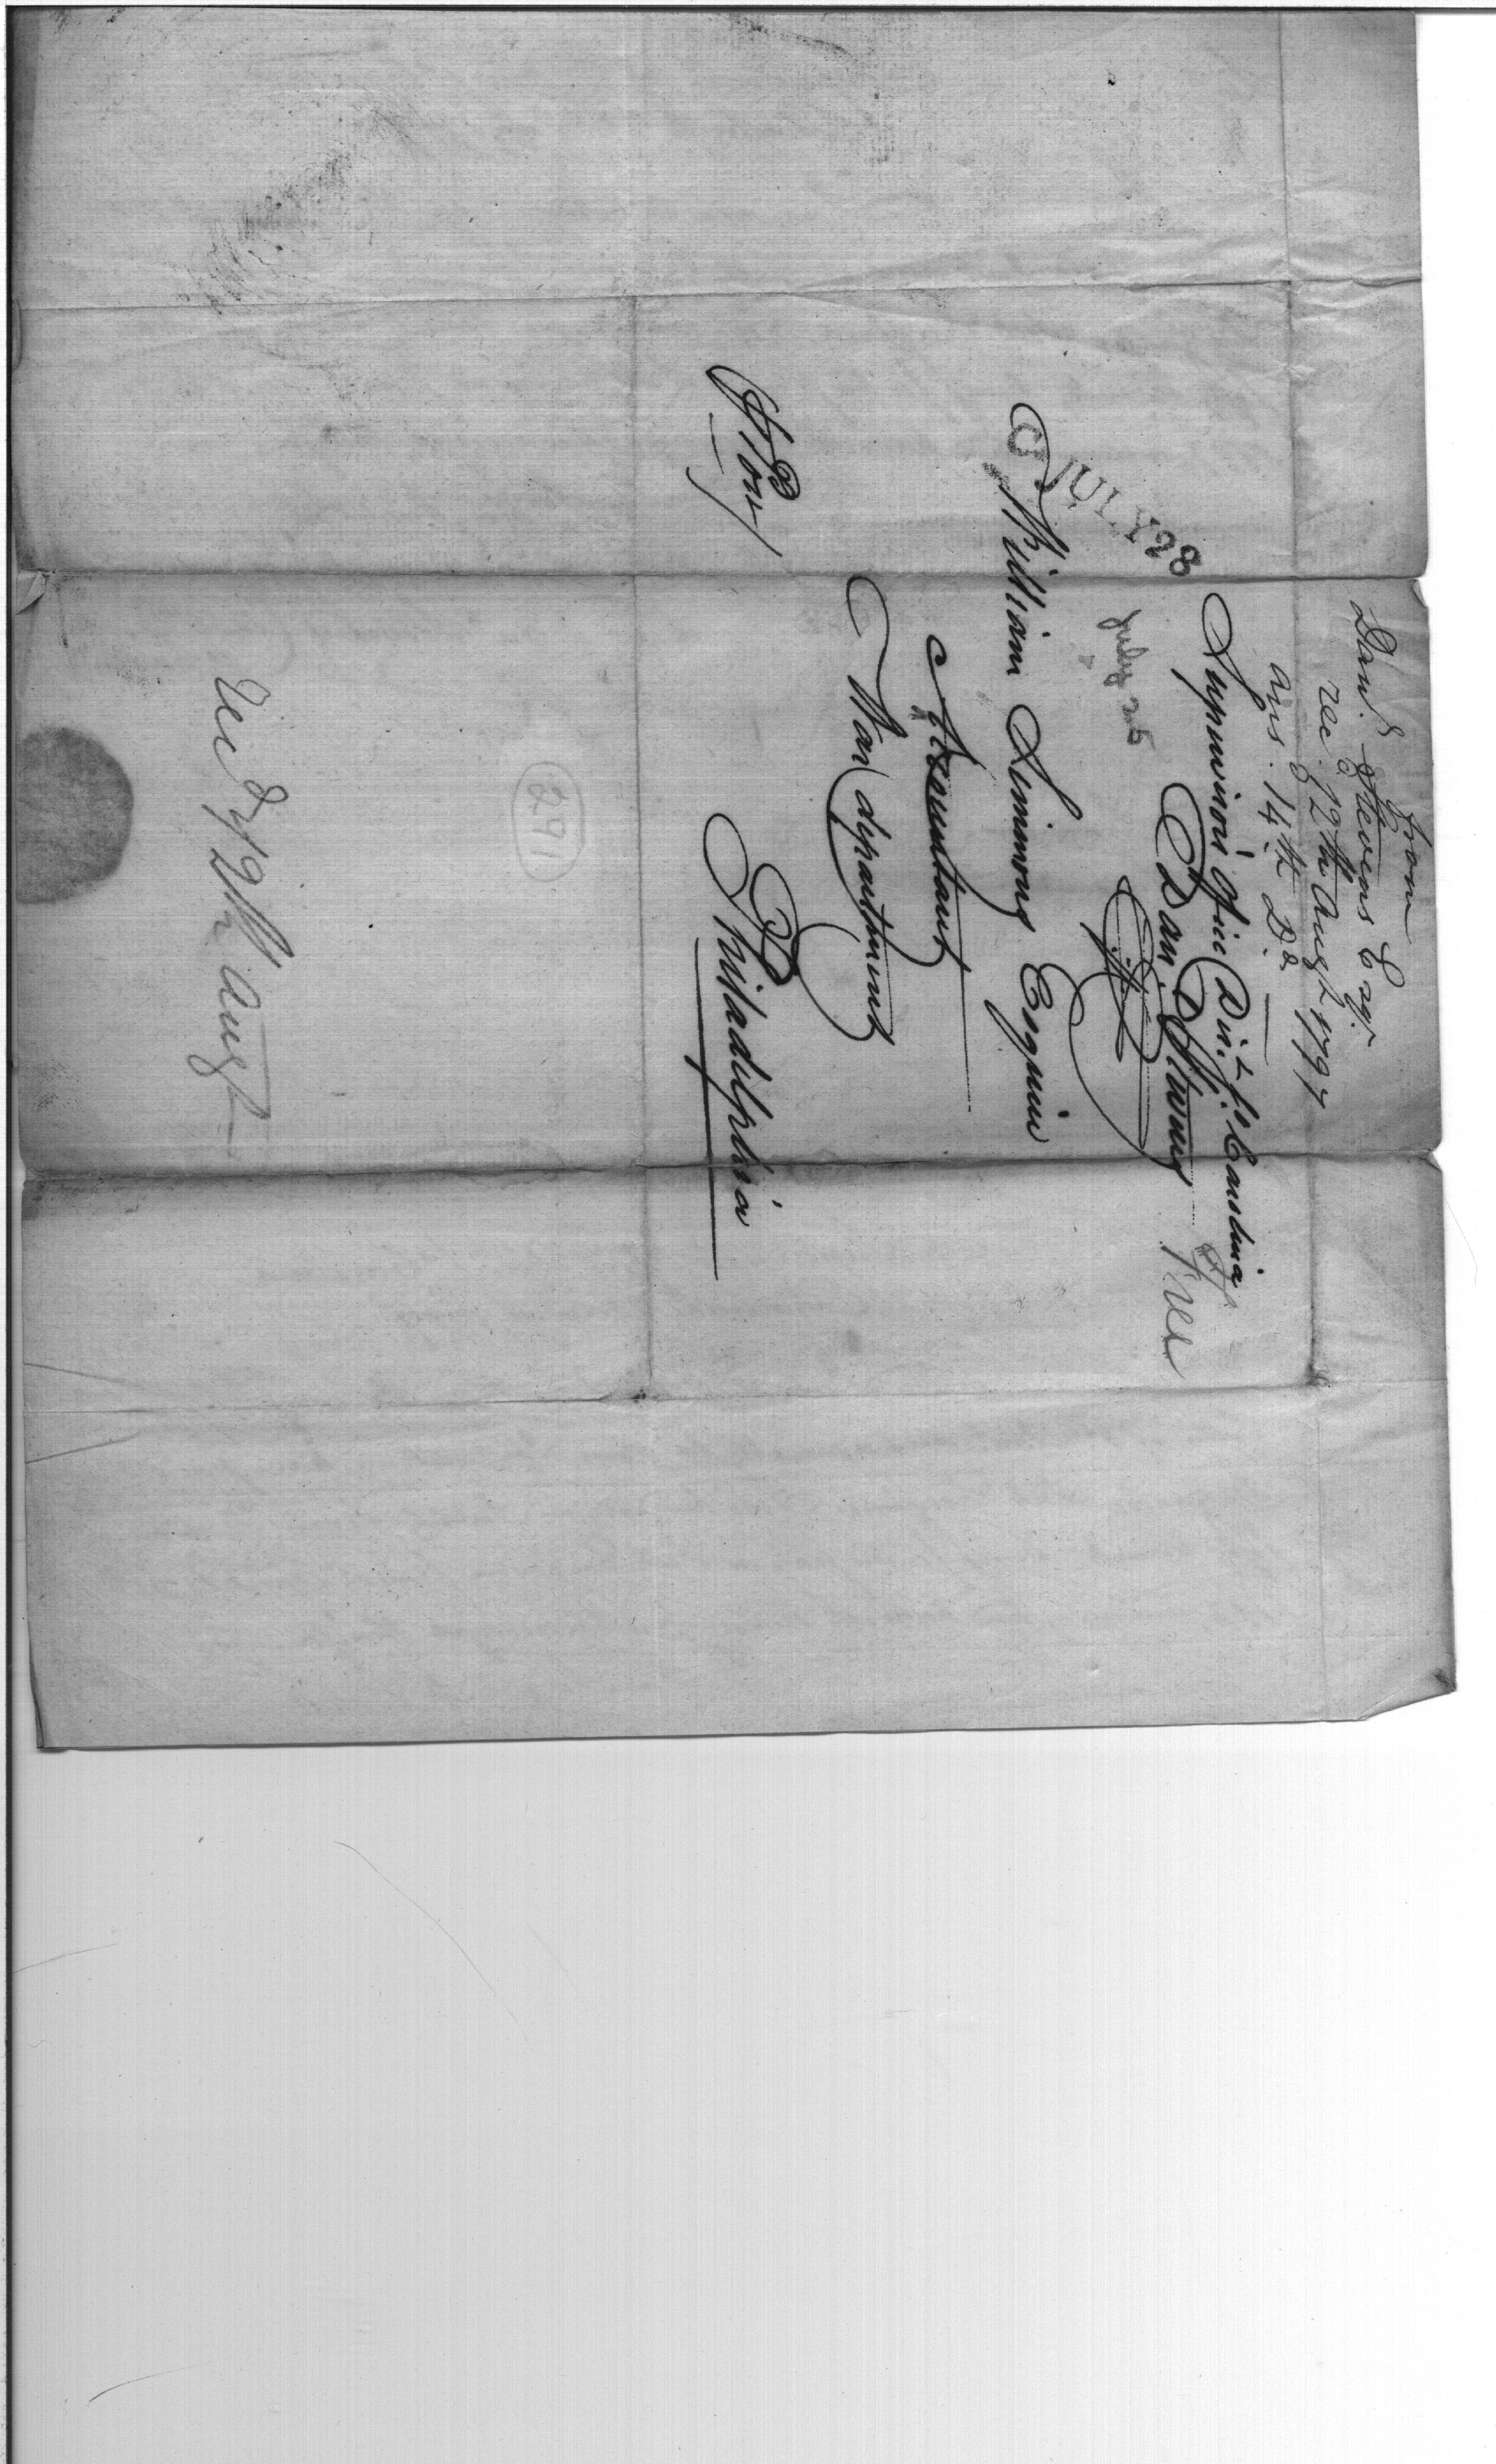 from
Danl. Stevens Esqr.
recd. 12th Augt 1797
ans. 14th Do.
Supervisors Office Dist. So. Carolina
Dan. Stevens
Free
C JULY 28
5 July
William Simmons Esquire
Accountant
War department
Philadelphia
291
recd 12th Augt